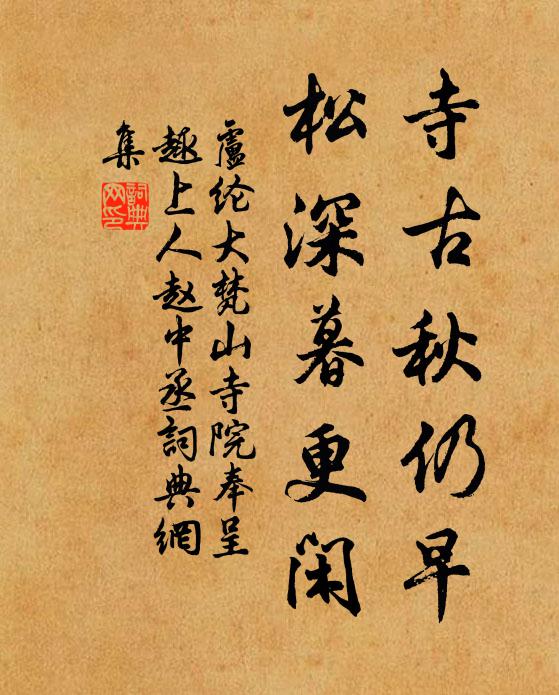 寺古秋仍早
松深暮更闲
盧纶大梵山寺院奉呈
趣上人赵中丞詞典網
集
詞典网印